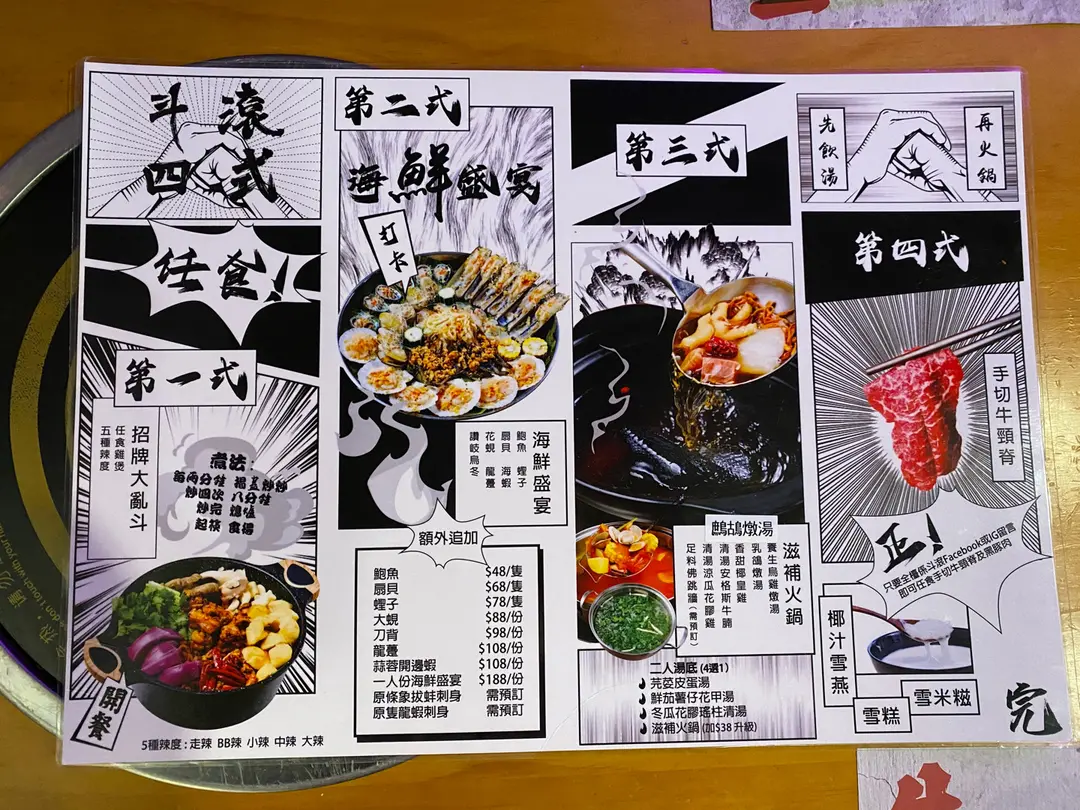 斗滾
四式
任食!
第一式
招牌大亂斗
任食雞煲
五種辣度
煮法:
每兩分鐘 揭蓋炒炒
炒四次 八分鐘
炒完 熄爐
起筷 食得
開餐
5種辣度 : 走辣 BB辣 小辣 中辣 大辣
第二式
海鮮盛宴
打卡
海鮮盛宴
鮑魚 蟶子
扇貝 海蝦
花蜆 龍躉
讚岐烏冬
額外追加
鮑魚 $48/隻
扇貝 $68/隻
蟶子 $78/隻
大蜆 $88/份
刀背 $98/份
龍躉 $108/份
蒜蓉開邊蝦 $108/份
一人份海鮮盛宴 $188/份
原條象拔蚌刺身 需預訂
原隻龍蝦刺身 需預訂
第三式
鷓鴣燉湯
滋補火鍋
養生烏雞燉湯
乳鴿燉湯
香甜椰皇雞
清湯安格斯牛腩
清湯涼瓜花膠雞
足料佛跳牆(需預訂)
二人湯底 (4選1)
芫荽皮蛋湯
鮮茄薯仔花甲湯
冬瓜花膠瑤柱清湯
滋補火鍋 (加$38 升級)
先飲湯
再火鍋
第四式
手切牛頸脊
正!
只要全檯係斗滾Facebook或IG留言
即可任食手切牛頸脊及黑豚肉
椰汁雪燕
雪糕
雪米糍
完